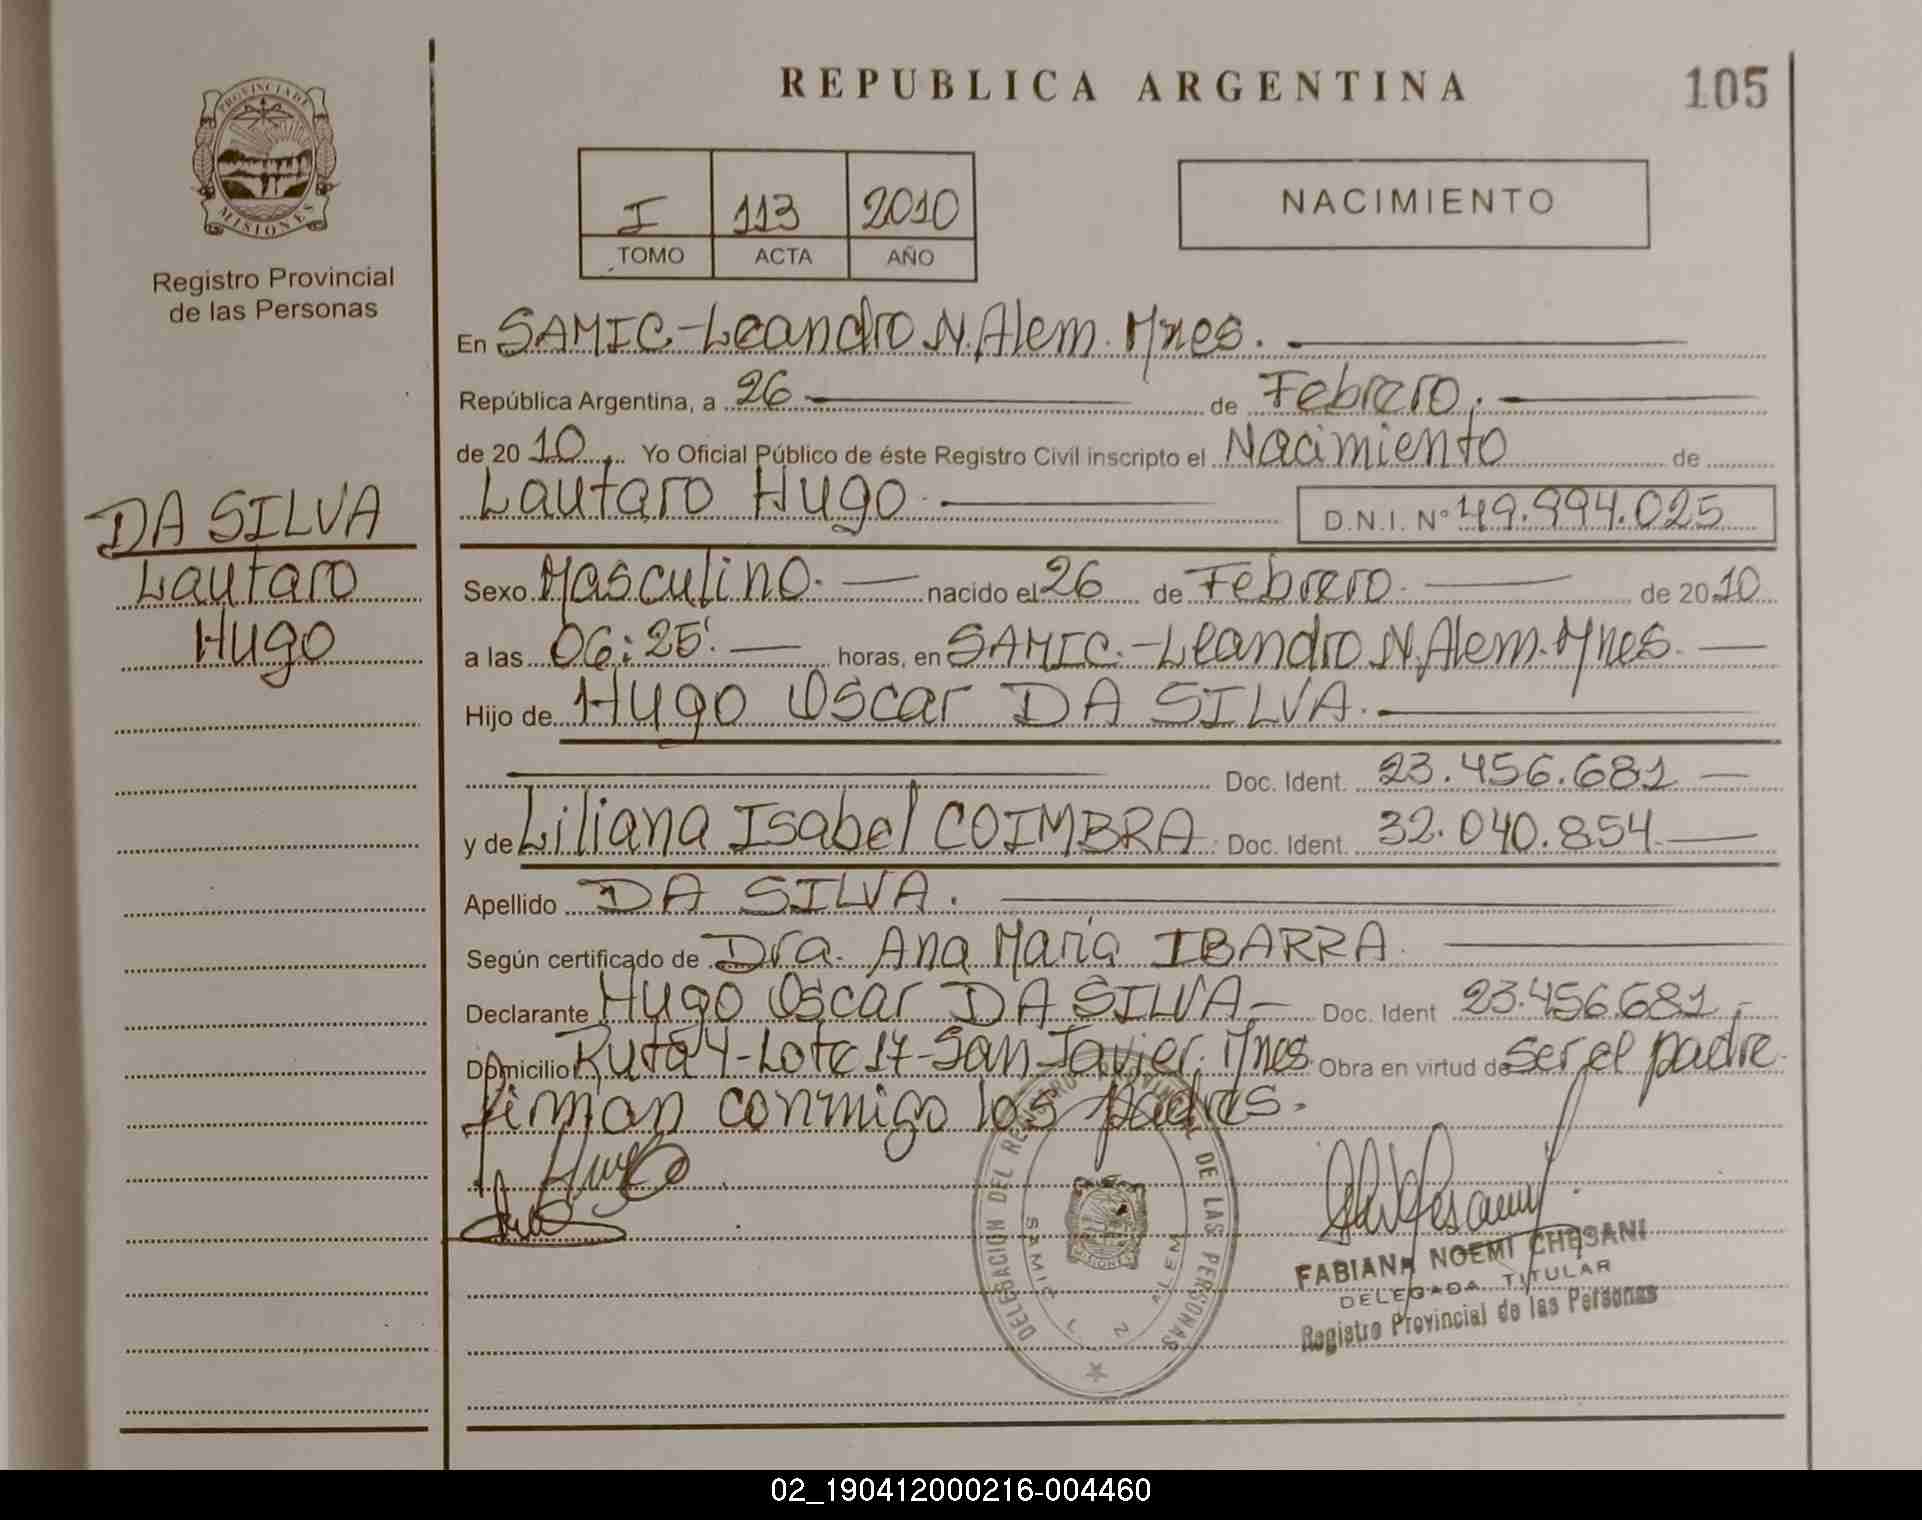 REPUBLICA ARGENTINA
105
PROVINCIA DE
MISIONES
Registro Provincial
de las Personas
I 113 2010
TOMO ACTA AÑO
NACIMIENTO
En SAMIC-Leandro N. Alem. Mnes.
República Argentina, a 26 de Febrero.
de 2010. Yo Oficial Público de éste Registro Civil inscripto el Nacimiento de
Lautaro Hugo. D.N.I. N° 49.994.025
DA SILVA
Lautaro
Hugo
Sexo Masculino. nacido el 26 de Febrero. de 2010
a las 06:25'. horas, en SAMIC.-Leandro N. Alem. Mnes.
Hijo de Hugo Oscar DA SILVA.
Doc. Ident. 23.456.681
y de Liliana Isabel COIMBRA. Doc. Ident. 32.040.854.
Apellido DA SILVA.
Según certificado de Dra. Ana María IBARRA.
Declarante Hugo Oscar DA SILVA- Doc. Ident 23.456.681.-
Domicilio Ruta 4-Lote 17-San Javier. Mnes. Obra en virtud de ser el padre.
firman conmigo los padres.
DELEGACION DEL REGISTRO PROVINCIAL DE LAS PERSONAS
SAMIC L. N. ALEM
MISIONES
FABIANA NOEMI CHESANI
DELEGADA TITULAR
Registro Provincial de las Personas
02_190412000216-004460